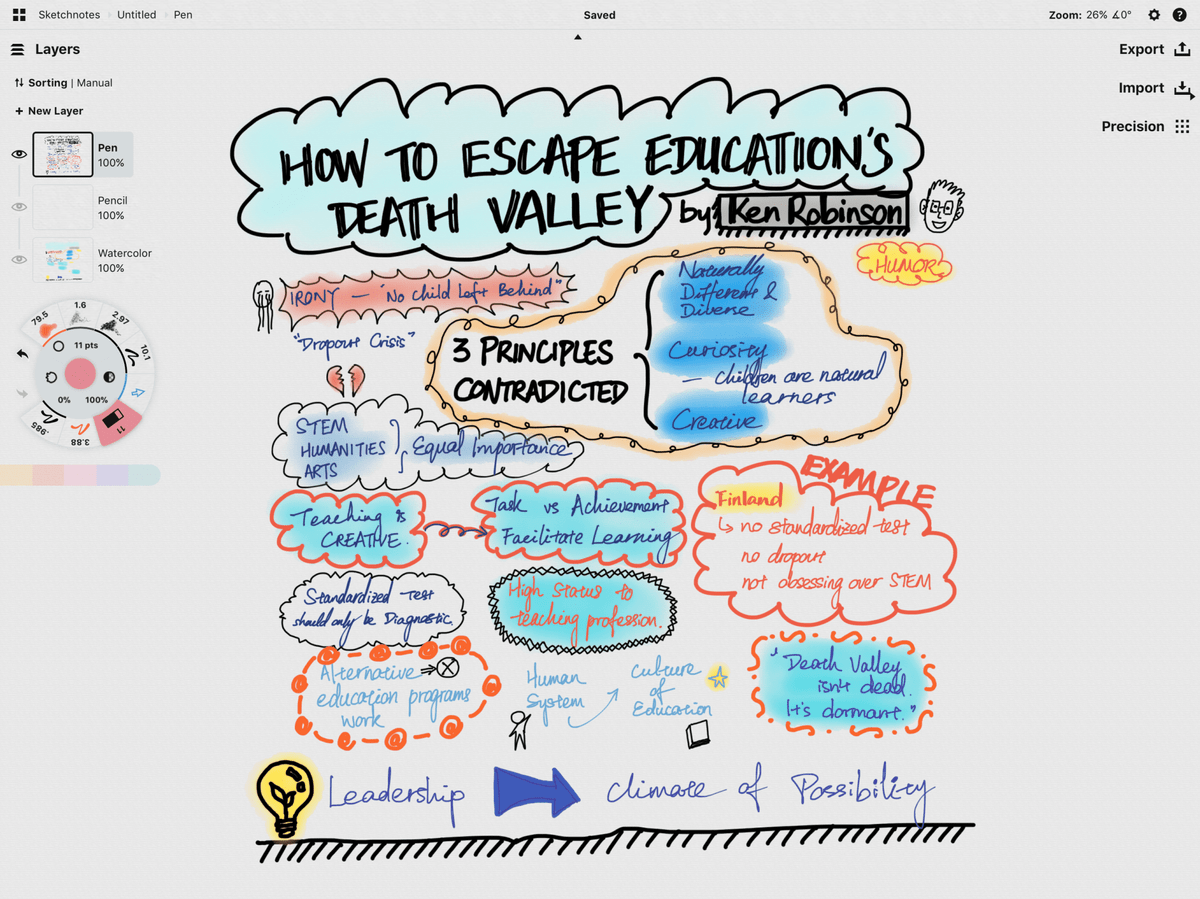 Sketchnotes › Untitled › Pen
Saved
Zoom: 26% ∡0°
Layers
Sorting | Manual
+ New Layer
Pen
100%
Pencil
100%
Watercolor
100%
79.5
1.6
2.97
10.1
11
3.88
.985
11 pts
0% 100%
Export
Import
Precision
HOW TO ESCAPE EDUCATION'S
DEATH VALLEY by: Ken Robinson
HUMOR
IRONY — "No Child Left Behind"
"Dropout Crisis"
3 PRINCIPLES
CONTRADICTED
Naturally
Different &
Diverse
Curiosity
— children are natural
learners
Creative
STEM
HUMANITIES
ARTS
Equal Importance
Teaching is
CREATIVE.
Task vs Achievement
Facilitate Learning
EXAMPLE
Finland
↳ no standardized test
no dropout
not obsessing over STEM
Standardized Test
should only be Diagnostic.
High Status to
teaching profession.
Alternative
education programs
work
Human
System
Culture
of
Education
"Death Valley
isn't dead.
It's dormant."
Leadership
Climate of Possibility